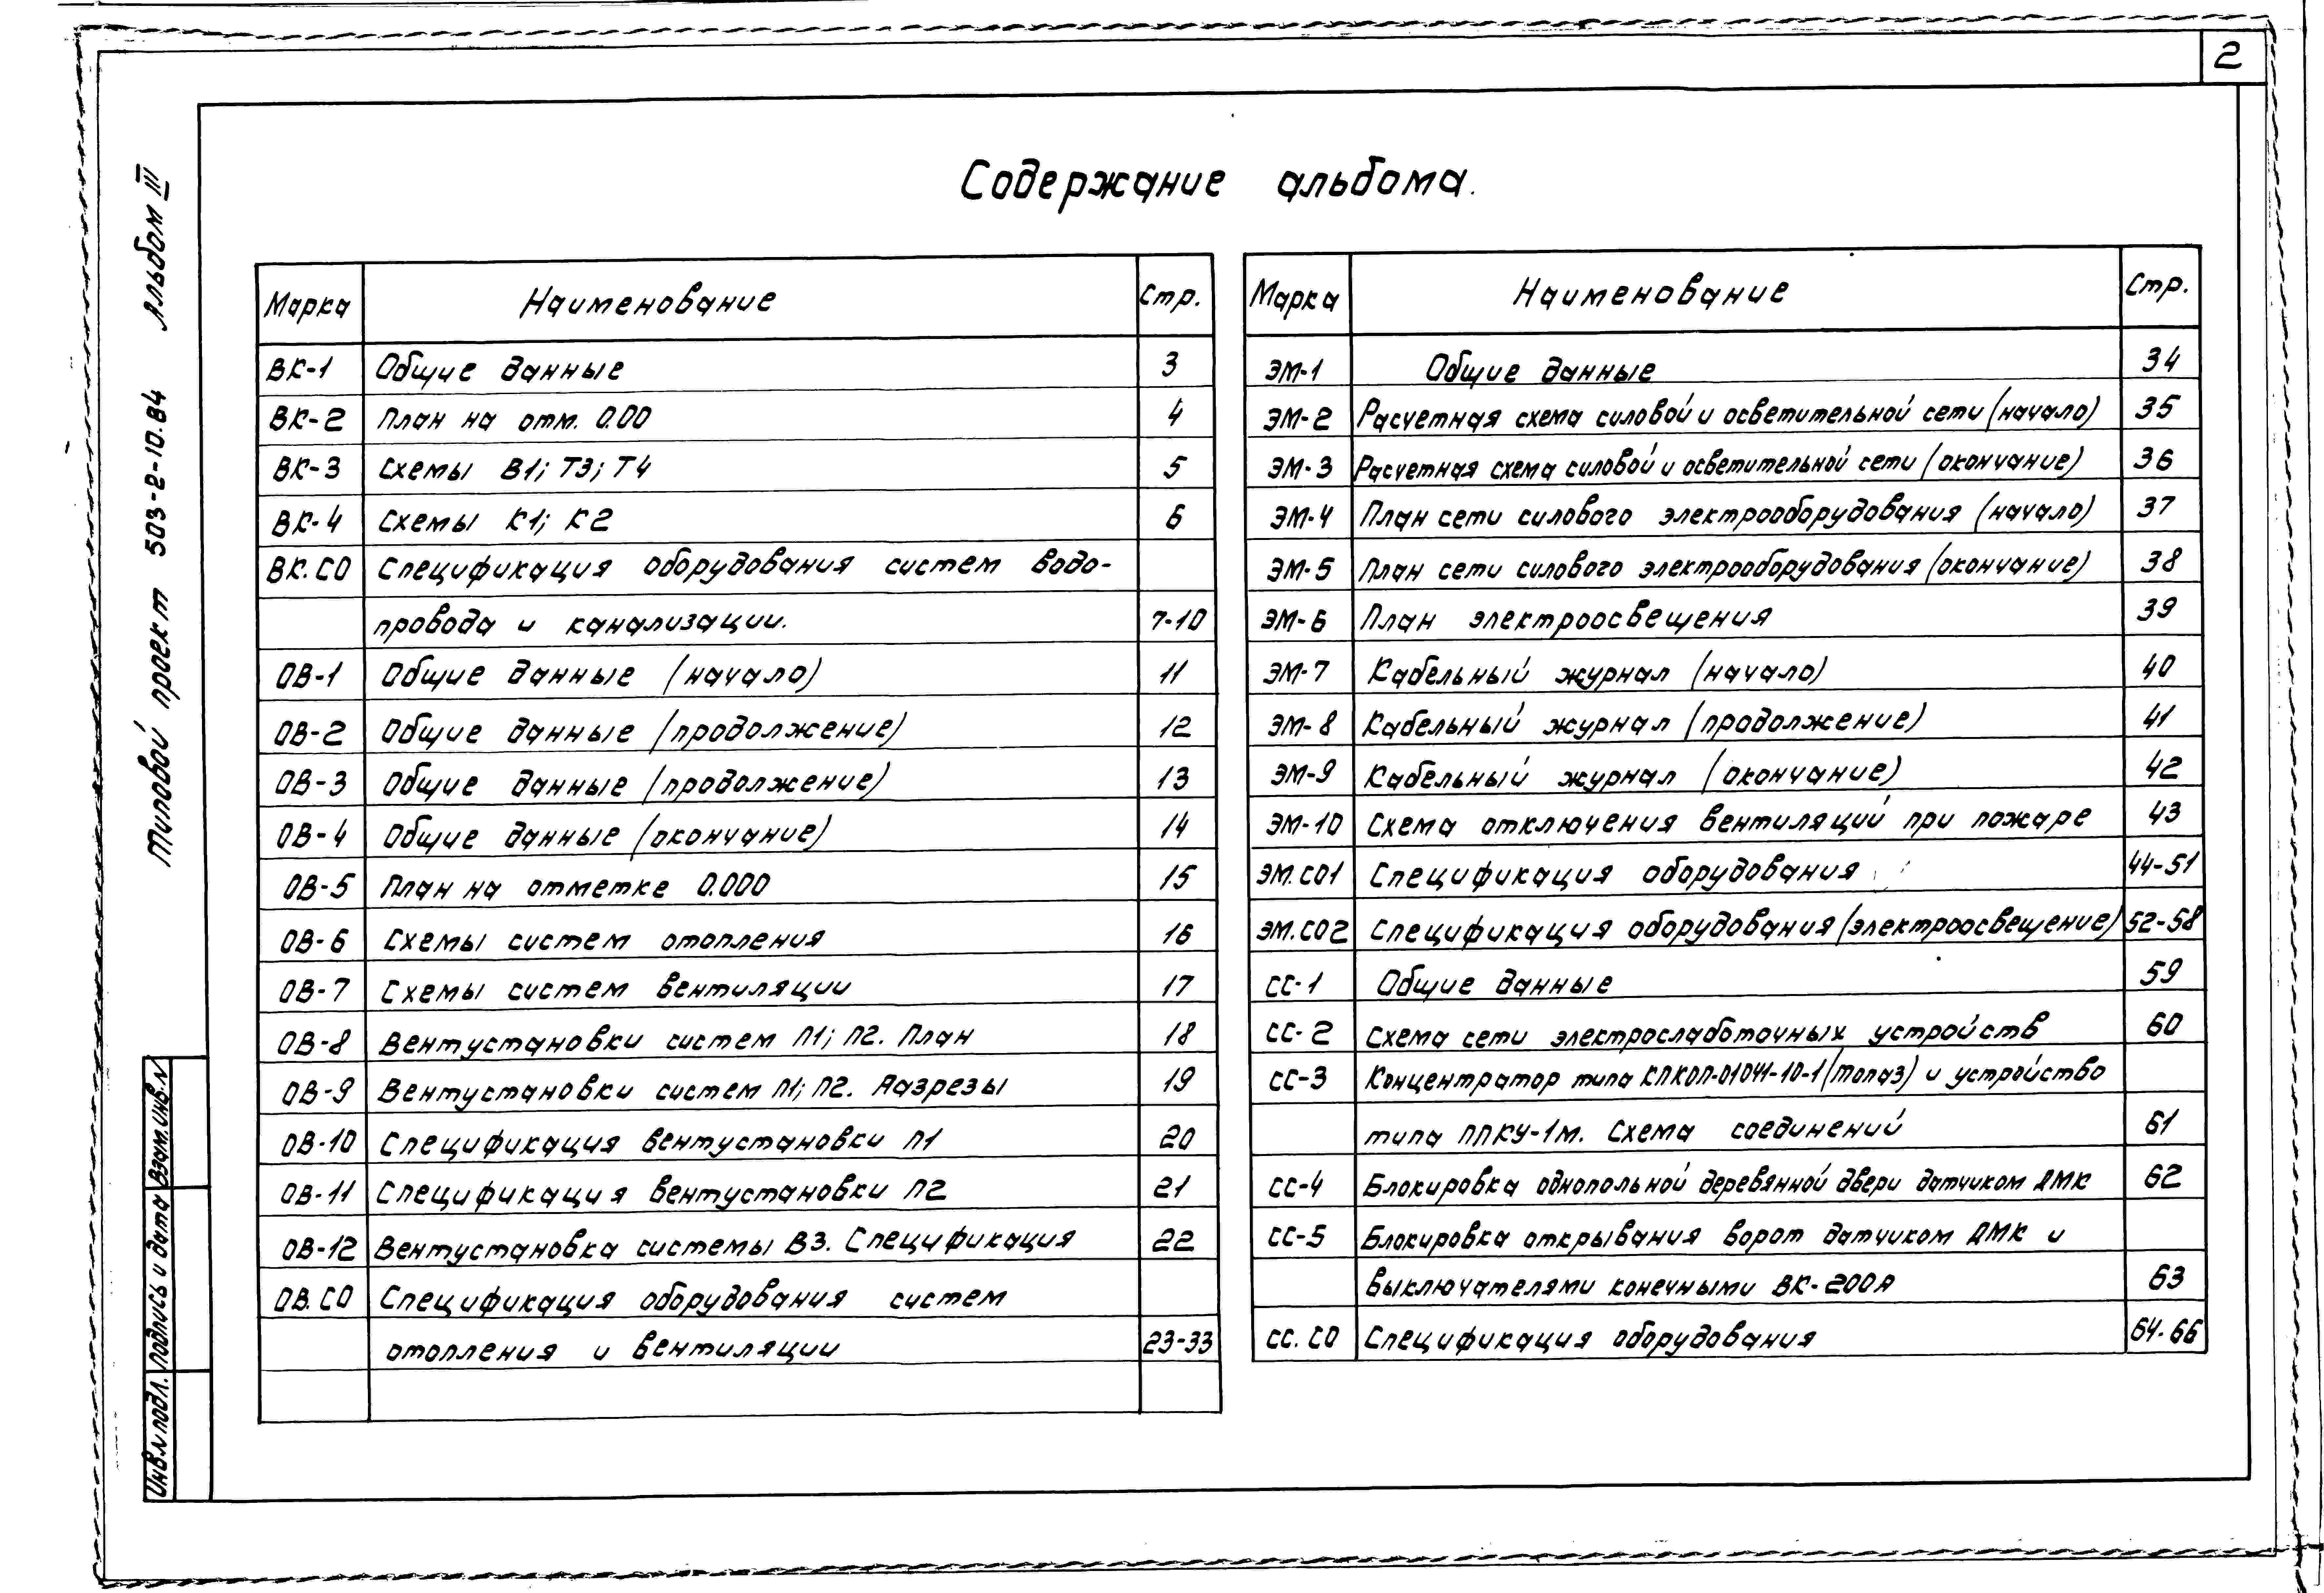 2
Типовой проект 503-2-10.84 Альбом III
Содержание альбома.
Марка Наименование Стр.
ВК-1 Общие данные 3
ВК-2 План на отм. 0.00 4
ВК-3 Схемы В1; Т3; Т4 5
ВК-4 Схемы К1; К2 6
ВК.СО Спецификация оборудования систем водо-
провода и канализации. 7-10
ОВ-1 Общие данные (начало) 11
ОВ-2 Общие данные (продолжение) 12
ОВ-3 Общие данные (продолжение) 13
ОВ-4 Общие данные (окончание) 14
ОВ-5 План на отметке 0.000 15
ОВ-6 Схемы систем отопления 16
ОВ-7 Схемы систем вентиляции 17
ОВ-8 Вентустановки систем П1; П2. План 18
ОВ-9 Вентустановки систем П1; П2. Разрезы 19
ОВ-10 Спецификация вентустановки П1 20
ОВ-11 Спецификация вентустановки П2 21
ОВ-12 Вентустановка системы В3. Спецификация 22
ОВ.СО Спецификация оборудования систем
отопления и вентиляции 23-33
Марка Наименование Стр.
ЭМ-1 Общие данные 34
ЭМ-2 Расчетная схема силовой и осветительной сети (начало) 35
ЭМ-3 Расчетная схема силовой и осветительной сети (окончание) 36
ЭМ-4 План сети силового электрооборудования (начало) 37
ЭМ-5 План сети силового электрооборудования (окончание) 38
ЭМ-6 План электроосвещения 39
ЭМ-7 Кабельный журнал (начало) 40
ЭМ-8 Кабельный журнал (продолжение) 41
ЭМ-9 Кабельный журнал (окончание) 42
ЭМ-10 Схема отключения вентиляций при пожаре 43
ЭМ.СО1 Спецификация оборудования 44-51
ЭМ.СО2 Спецификация оборудования (электроосвещение) 52-58
СС-1 Общие данные 59
СС-2 Схема сети электрослаботочных устройств 60
СС-3 Концентратор типа КПКОП-01041-10-1 (топаз) и устройство
типа ППКУ-1М. Схема соединений 61
СС-4 Блокировка однопольной деревянной двери датчиком ДМК 62
СС-5 Блокировка открывания ворот датчиком ДМК и
выключателями конечными ВК-200А 63
СС.СО Спецификация оборудования 64-66
Инв.N подл. Подпись и дата Взам.инв.N